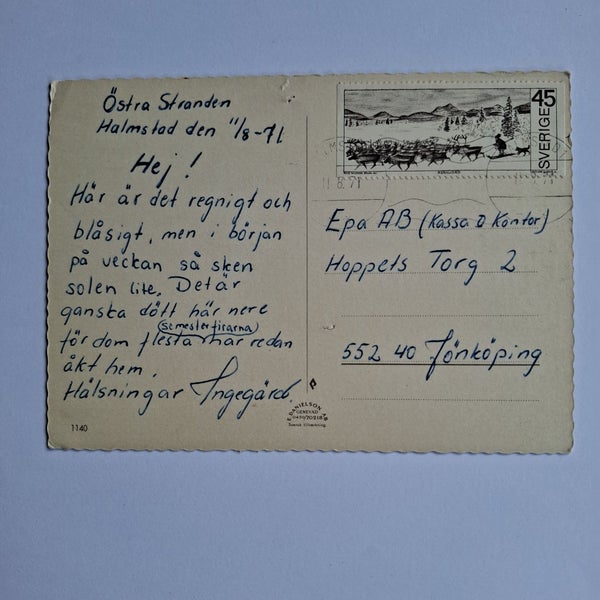 Östra Stranden
Halmstad den 11/8-71
Hej!
Här är det regnigt och
blåsigt, men i början
på veckan så sken
solen lite. Det är
ganska dött här nere
(semesterfirarna)
för dom flesta har redan
åkt hem.
Hälsningar Ingegärd
1140
45
SVERIGE
11.8.71
Epa AB (Kassa o Kontor)
Hoppets Torg 2
552 40 Jönköping
E. DANIELSON AB
GENEVAD
Svensk tillverkning